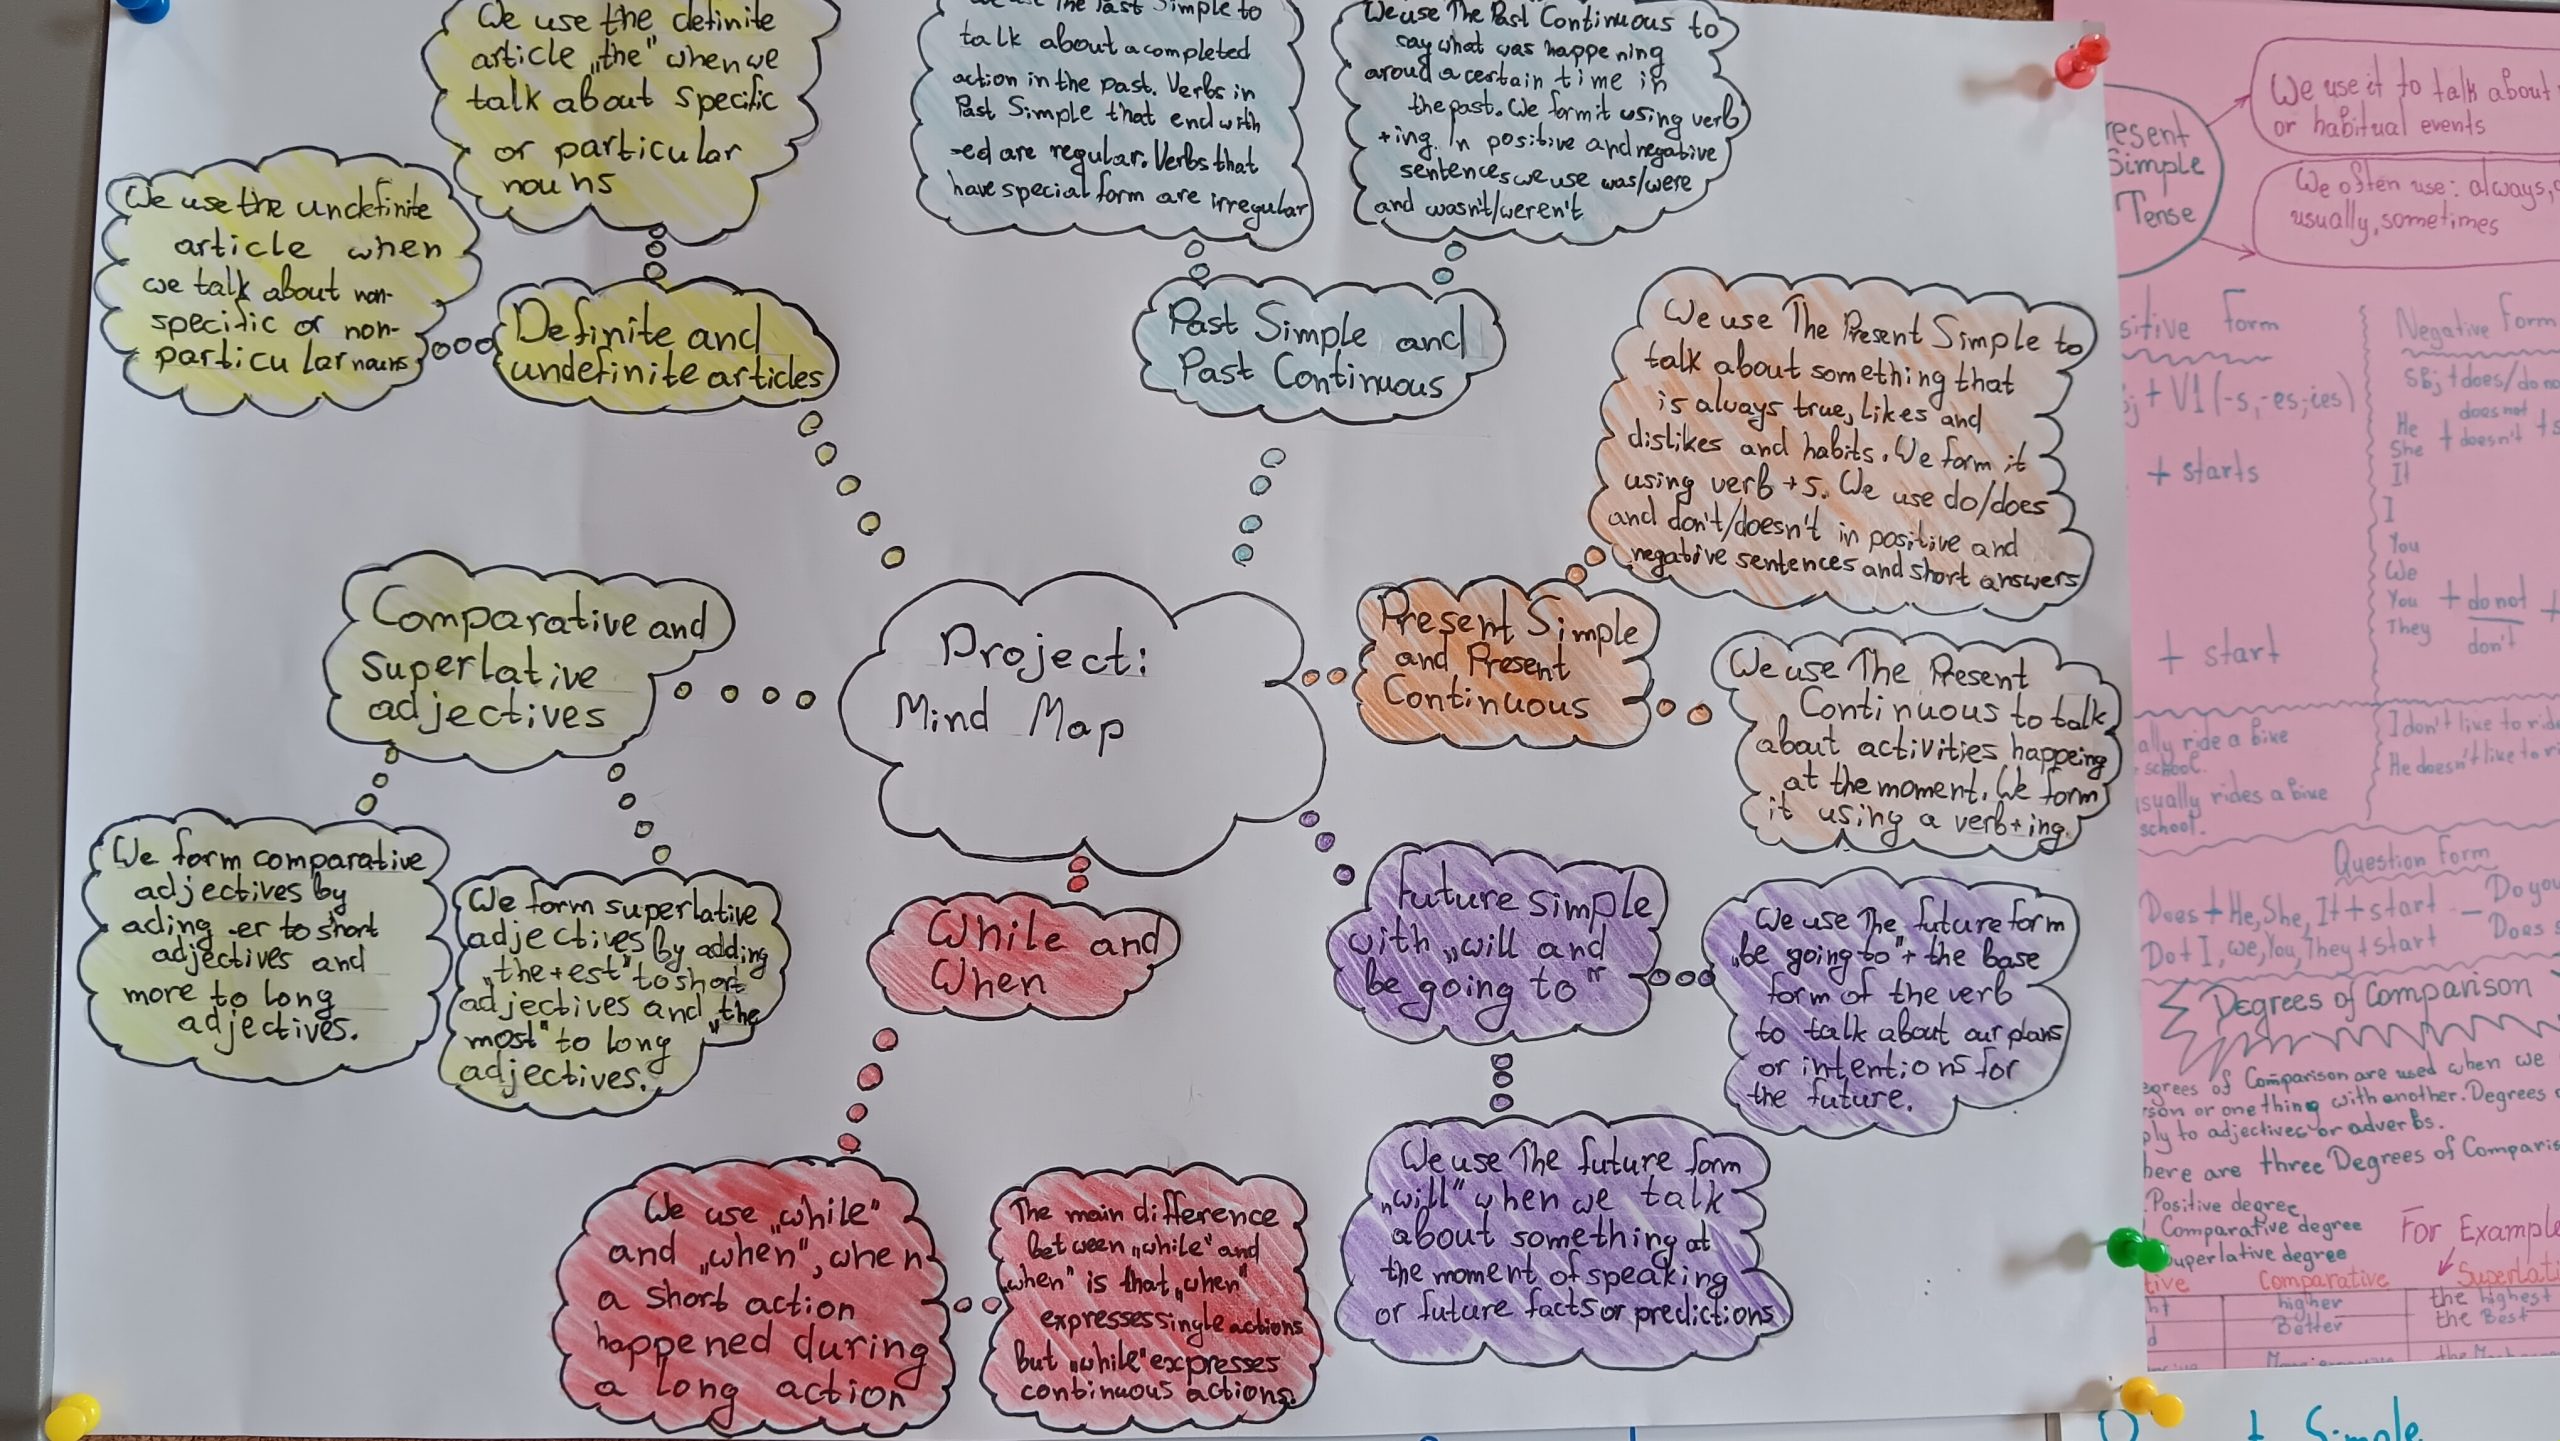 We use the definite
article „the" when we
talk about specific
or particular
nouns
We use the undefinite
article when
we talk about non-
specific or non-
particular nouns
Definite and
undefinite articles
We use The Past Simple to
talk about a completed
action in the past. Verbs in
Past Simple that end with
-ed are regular. Verbs that
have special form are irregular
We use The Past Continuous to
say what was happening
aroud a certain time in
the past. We form it using verb
+ing. In positive and negative
sentences we use was/were
and wasn't/weren't
Past Simple and
Past Continuous
We use The Present Simple to
talk about something that
is always true, likes and
dislikes and habits. We form it
using verb +s. We use do/does
and don't/doesn't in positive and
negative sentences and short answers
Present Simple
and Present
Continuous
We use The Present
Continuous to talk
about activities happeing
at the moment. We form
it using a verb+ing.
Comparative and
superlative
adjectives
Project:
Mind Map
We form comparative
adjectives by
ading -er to short
adjectives and
more to long
adjectives.
We form superlative
adjectives by adding
„the+est" to short
adjectives and „the
most" to long
adjectives.
While and
When
future simple
with „will and
be going to"
We use The future form
„be going to"+ the base
form of the verb
to talk about our plans
or intentions for
the future.
We use The future form
„will" when we talk
about something at
the moment of speaking
or future facts or predictions
We use „while"
and „when", when
a short action
happened during
a long action
The main difference
between „while" and
„when" is that „when"
expresses single actions
but „while" expresses
continuous actions.
Simple
Tense
We use it to talk about
or habitual events
We often use: always,
usually, sometimes
Form
Negative Form
+ V1 (-s,-es,-ies)
Sbj + does/do
does not
He
She + doesn't +
It
+ starts
I
You
We
You + do not +
They don't
+ start
ride a bike
school.
I don't like to
rides a bike
He doesn't like to
school.
Question Form
Does + He, She, It + start - Do you
Do + I, we, You, They + start Does
Degrees of Comparison
of Comparison are used when we
or one thing with another. Degrees
to adjectives or adverbs.
are three Degrees of
Positive degree
Comparative degree
degree
For Example
Comparative
higher the highest
Better the Best
Simple